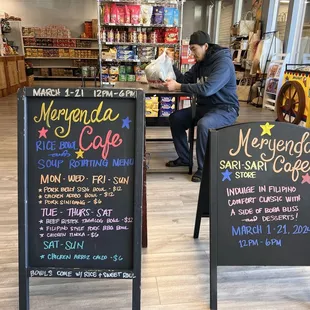 MARCH 1-21 12PM-6PM
Meryenda
Cafe
RICE BOWL
AND
SOUP ROTATING MENU
MON-WED-FRI-SUN
* PORK BELLY SISIG BOWL - $12
* CHICKEN ADOBO BOWL - $12
* PORK SINIGANG - $6
TUE-THURS-SAT
* BEEF BISTEK TAGALOG BOWL - $12
* FILIPINO STYLE PORK BBQ BOWL
* CHICKEN TINOLA - $6
SAT-SUN
* CHICKEN ARROZ CALDO - $6
BOWLS COME W/ RICE & SWEET ROLL
Meryenda
SARI-SARI Cafe
STORE
INDULGE IN FILIPINO
COMFORT CLASSIC WITH
A SIDE OF BOBA BLISS
and DESSERTS!
MARCH 1-21, 2024
12PM-6PM